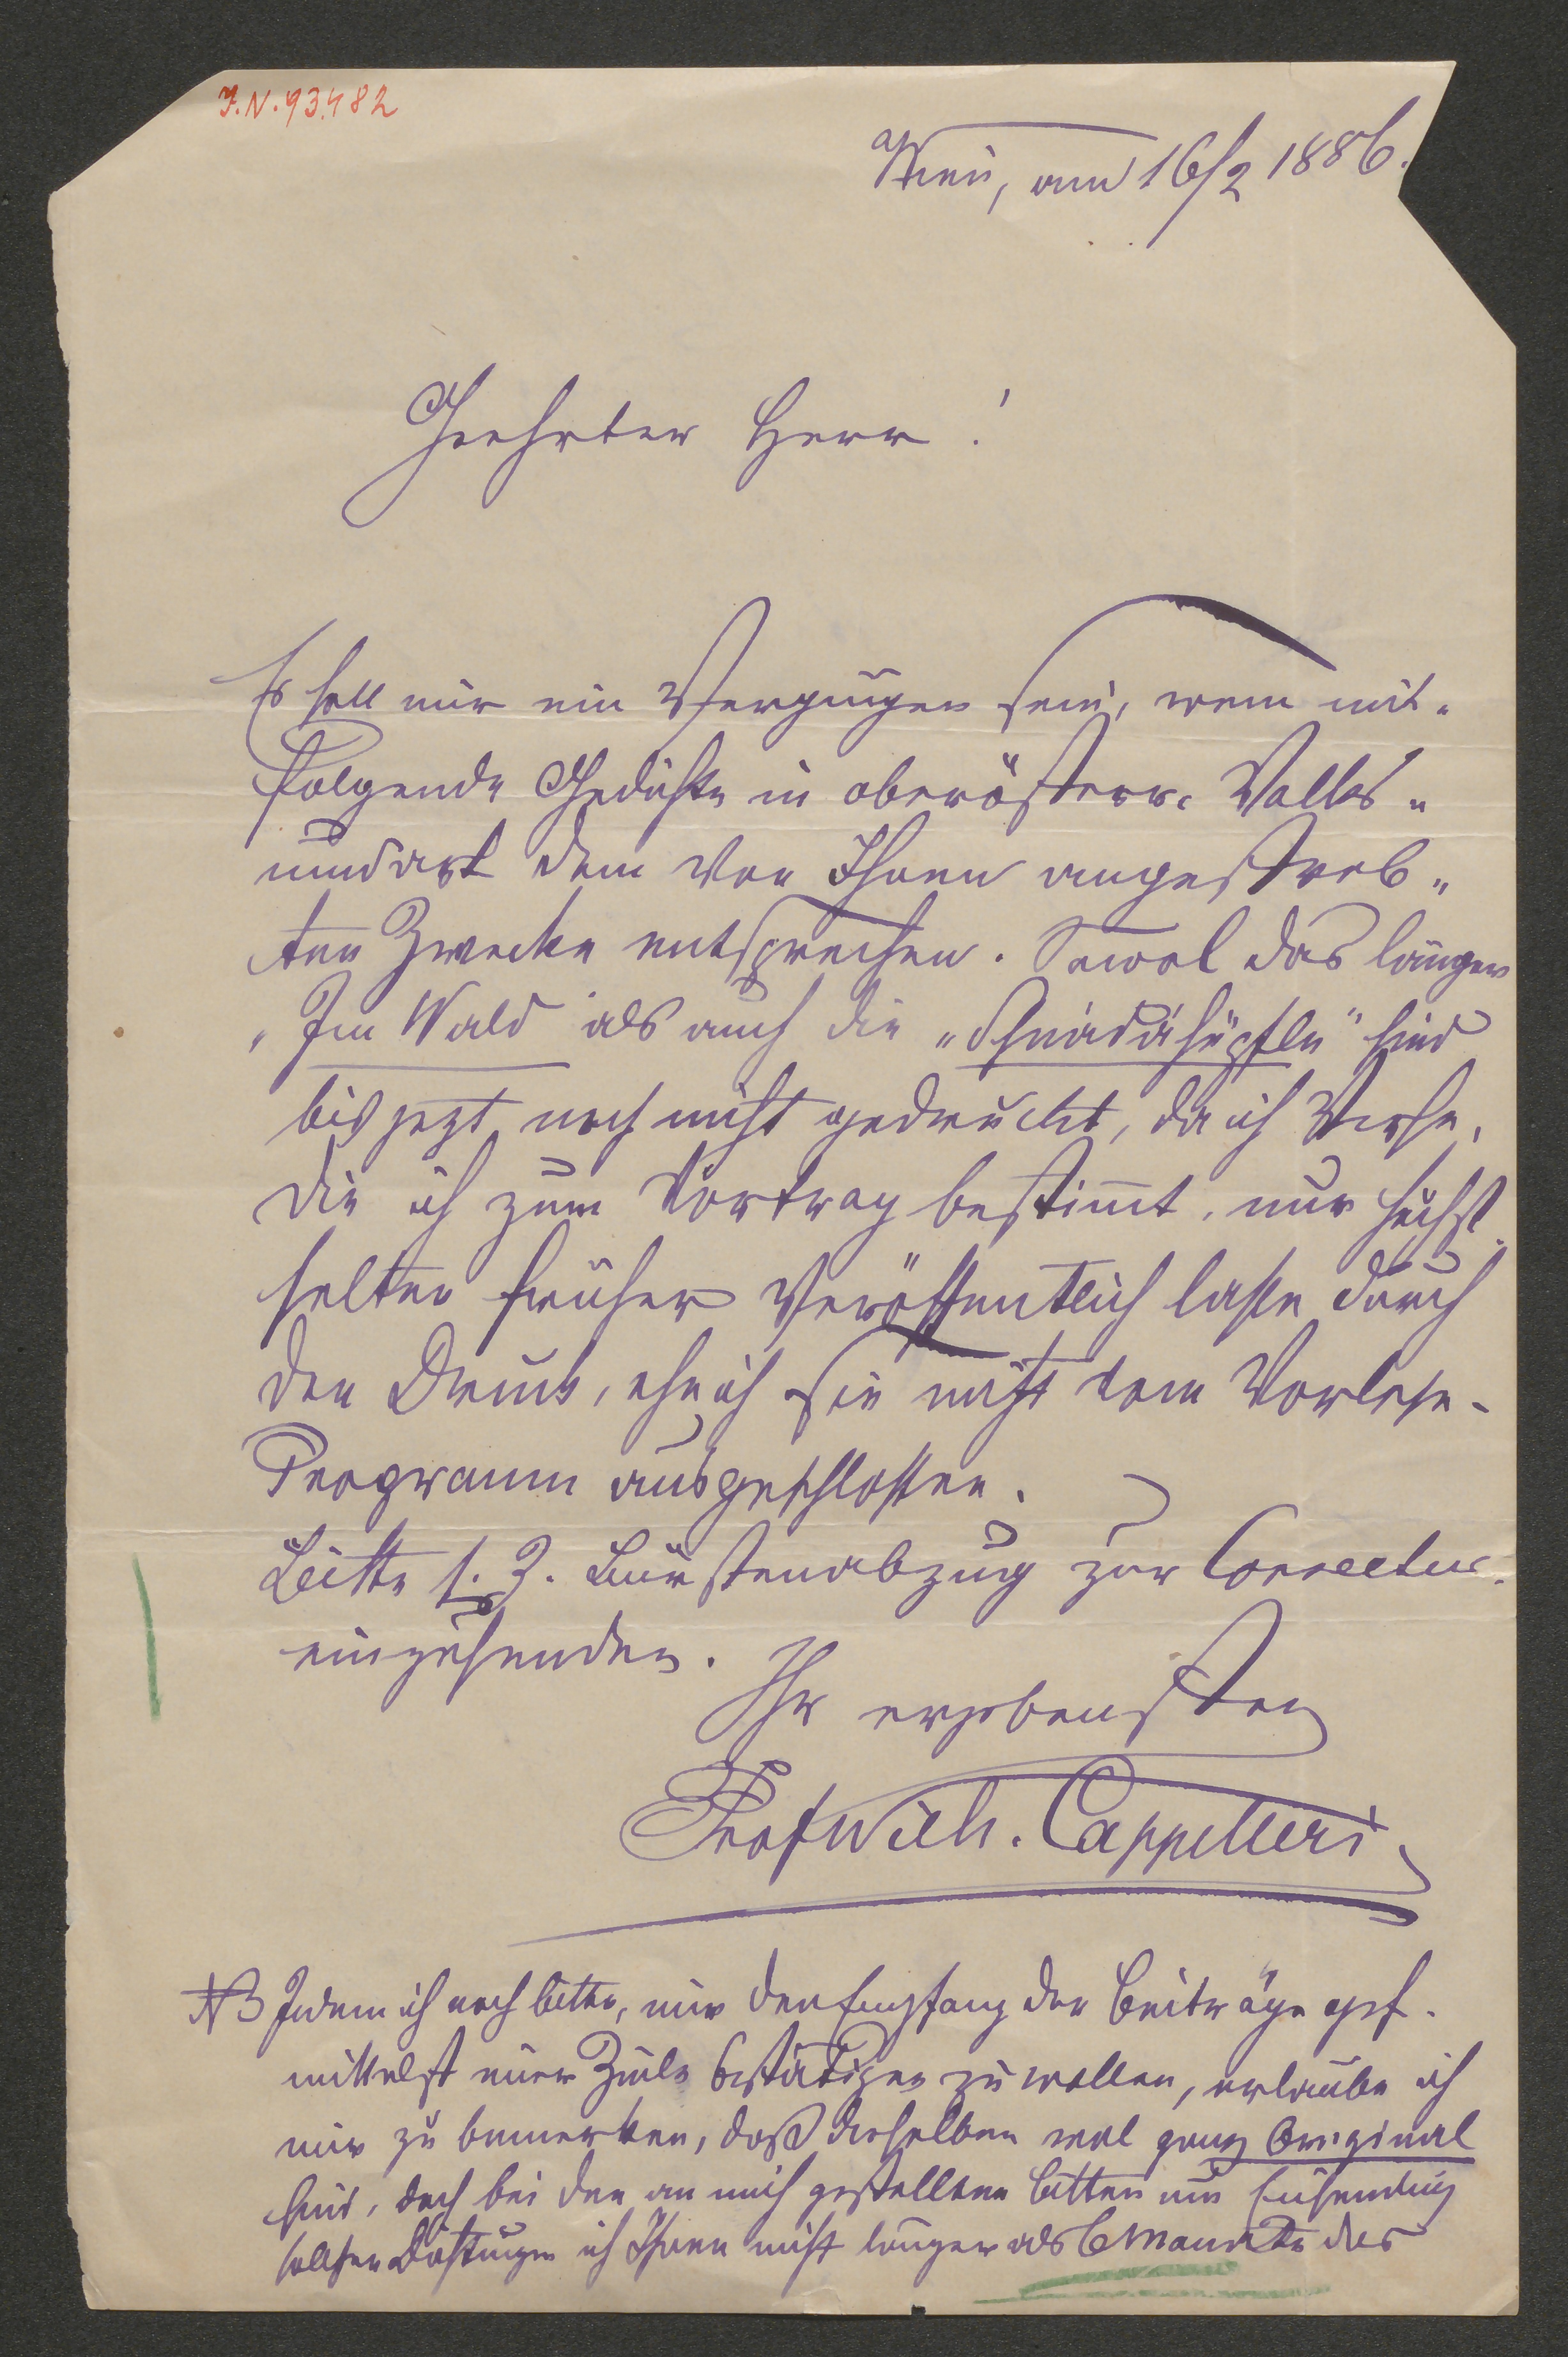 I.N.93.482
Wien, am 16/2 1886.
Geehrter Herr!
Es soll mir ein Vergnügen sein, wenn mit-
folgende Gedichte in oberösterr. Volks-
mundart dem von Ihnen angestreb-
ten Zwecke entsprechen. Sowol das längere
„Im Wald" als auch die „Schnádáhüpfln" sind
bis jezt noch nicht gedruckt, da ich Verse,
die ich zum Vortrag bestim̄t, nur höchst
selten früher Veröffentlich lasse durch
den Druck, ehe ich sie nicht vom Vorlese-
Programm ausgeschlossen.
Bitte s. Z. Bürstenabzug zur Correctur
einzusenden.
Ihr ergebenster
Prof Wilh. Cappilleri
NB Indem ich noch bitte, mir den Empfang der Beiträge gef.
mittelst einer Zeile bestätigen zu wollen, erlaube ich
mir zu bemerken, daß dieselben wol ganz Original
sind, doch bei den an mich gestellten Bitten um Einsendung
solcher Dichtungen ich Ihnen nicht länger als 6 Monate das